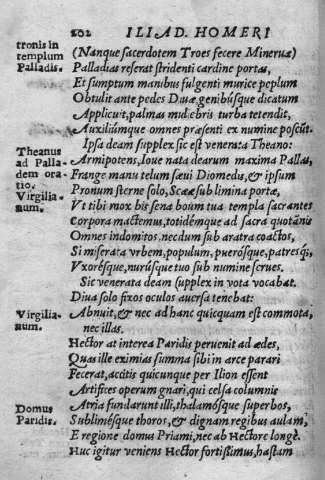 202 ILIAD. HOMERI
tronis in
templum
Palladis.
(Nanque sacerdotem Troes fecere Mineruæ)
Palladias reserat stridenti cardine portas,
Et sumptum manibus fulgenti murice peplum
Obtulit ante pedes Diuæ, genibúsque dicatum
Applicuit, palmas muliebris turba tetendit,
Auxiliúmque omnes præsenti ex numine poscũt.
Ipsa deam supplex sic est venerata Theano:
Theanus
ad Palla-
dem ora-
tio.
Virgilia-
num.
Armipotens, Ioue nata dearum maxima Pallas,
Frange manu telum sæui Diomedis, & ipsum
Pronum sterne solo, Scææ sub limina portæ,
Vt tibi mox bis sena boum tua templa sacrantes
Corpora mactemus, totidémque ad sacra quotãnis
Omnes indomitos, necdum sub aratra coactos,
Si miserata vrbem, populum, puerósque, patresq́,
Vxorésque, nurúsque tuo sub numine serues.
Sic venerata deam supplex in vota vocabat.
Diua solo fixos oculos auersa tenebat:
Virgilia-
num.
Abnuit, & nec ad hanc quicquam est commota,
nec illas.
Hector at interea Paridis peruenit ad ædes,
Quas ille eximias summa sibi in arce parari
Fecerat, accitis quicunque per Ilion essent
Artifices operum gnari, qui celsa columnis
Domus
Paridis.
Atria fundarunt illi, thalamósque superbos,
Sublimésque thoros, & dignam regibus aulam,
E regione domus Priami, nec ab Hectore longè.
Huc igitur veniens Hector fortißimus, hastam